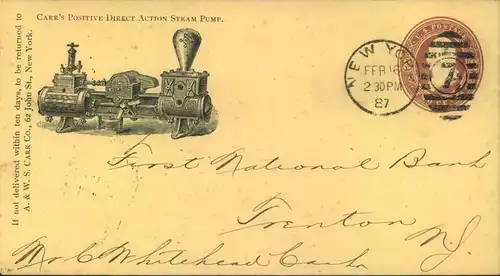 CARR'S POSITIVE DIRECT ACTION STEAM PUMP.
If not delivered within ten days, to be returned to
A. & W. S. CARR CO., 62 John St., New York.
NEW YORK
FEB 16
2 30 PM
87
U.S. POSTAGE
First National Bank
Trenton
N.J.
Whitehead Cash